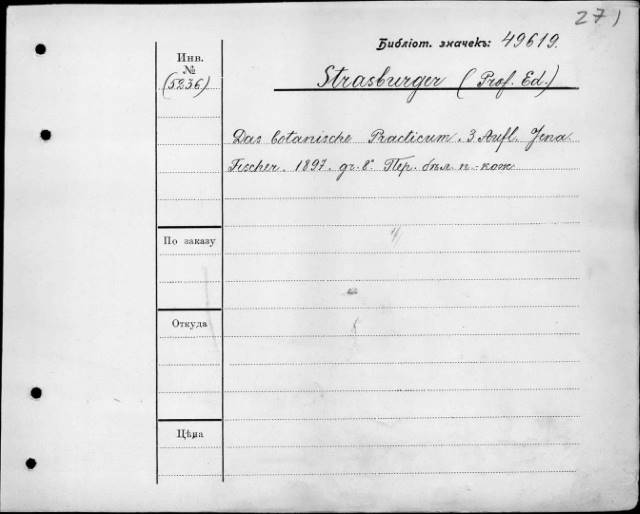 271
Библіот. значекъ: 49619.
Инв.
№
(5236)
Strasburger (Prof. Ed.)
Das botanische Practicum. 3 Aufl. Jena
Fischer. 1897. gr. 8° Пер. бѣл п.-кож
По заказу
Откуда
Цѣна